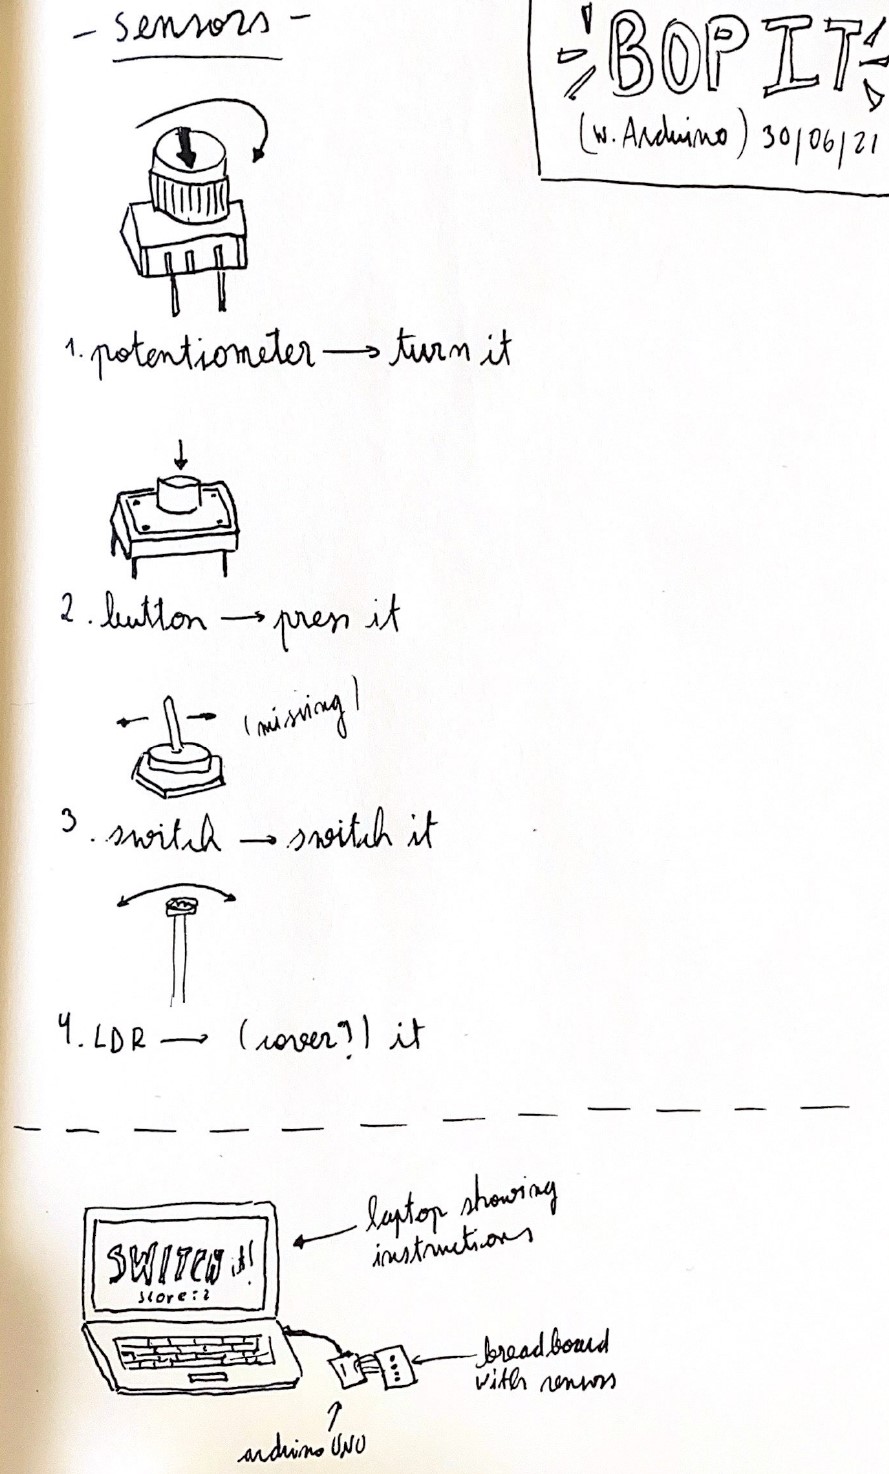 - sensors -
BOP IT
(w. Arduino) 30/06/21
1. potentiometer → turn it
2. button → press it
(missing)
3. switch → switch it
4. LDR → (cover?) it
laptop showing
instructions
SWITCH it!
score: 2
breadboard
with sensors
arduino UNO